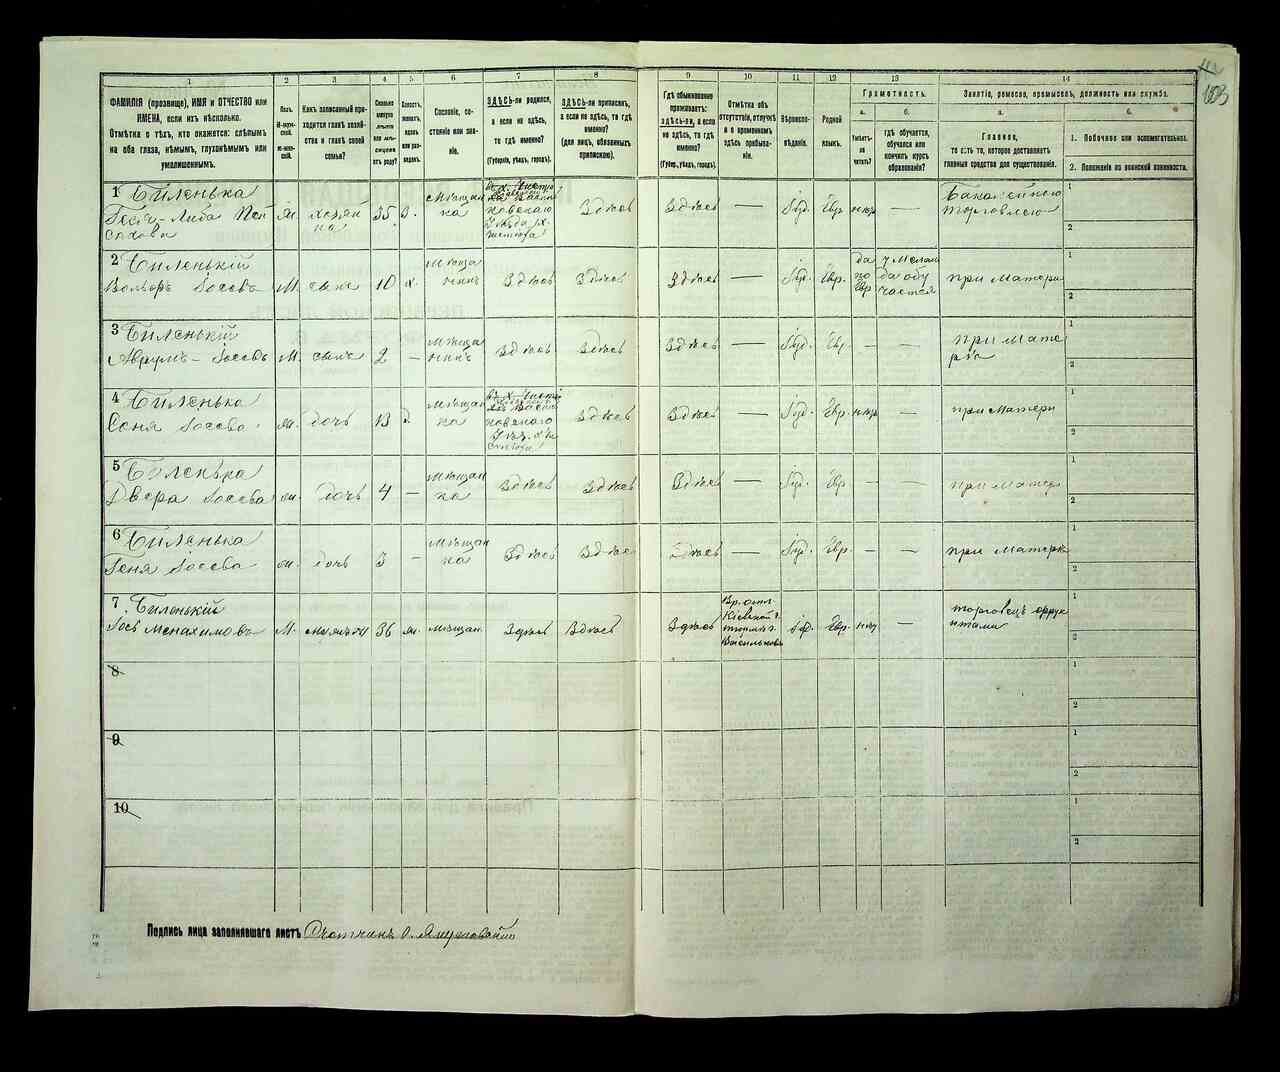 1 2 3 4 5 6 7 8 9 10 11 12 13 14
ФАМИЛІЯ (прозвище), ИМЯ и ОТЧЕСТВО или
ИМЕНА, если ихъ нѣсколько.
Отмѣтка о тѣхъ, кто окажется: слѣпымъ
на оба глаза, нѣмымъ, глухонѣмымъ или
умалишеннымъ.
Полъ.
М-муж-
ской.
Ж-жен-
скій.
Какъ записанный при-
ходится главѣ хозяй-
ства и главѣ своей
семьи?
Сколько
минуло
лѣтъ
или мѣ-
сяцевъ
отъ роду?
Холостъ,
женатъ,
вдовъ
или раз-
веденъ.
Сословіе, со-
стояніе или зва-
ніе.
ЗДѢСЬ-ли родился,
а если не здѣсь,
то гдѣ именно?
(Губернія, уѣздъ, городъ).
ЗДѢСЬ-ли приписанъ,
а если не здѣсь, то гдѣ
именно?
(для лицъ, обязанныхъ
припискою).
Гдѣ обыкновенно
проживаетъ:
здѣсь-ли, а если
не здѣсь, то гдѣ
именно?
(Губер., уѣздъ, городъ).
Отмѣтка объ
отсутствіи, отлучкѣ
и о временномъ
здѣсь пребыва-
ніи.
Вѣроиспо-
вѣданіе.
Родной
языкъ.
Грамотность.
а.
Умѣетъ-
ли
читать?
б.
гдѣ обучается,
обучался или
кончилъ курсъ
образованія?
Занятіе, ремесло, промыселъ, должность или служба.
а.
Главное,
то есть то, которое доставляетъ
главныя средства для существованія.
б.
1. Побочное или вспомогательное.
2. Положеніе по воинской повинности.
1 Биленька
Гися-Либа
Ж. хозяй
ка 35 З.
мѣщан
ка
Здѣсь Здѣсь — Іуд. Евр.
Бакалейною
торговлею
1
2
2 Биленькій
Вольфъ Іосевъ М. сынъ 10 х.
мѣща
нинъ
Здѣсь Здѣсь Здѣсь — Іуд. Евр.
да
по
евр
у мелам
да обу
чается
при матери
1
2
3 Биленькій
Аврумъ-Іосевъ М. сынъ 2 —
мѣща
нинъ
Здѣсь Здѣсь Здѣсь — Іуд. Евр. — —
при мате
ри
1
2
4 Биленька
Соня Іосева ж. дочь 13 д.
мѣщан
ка
Здѣсь Здѣсь — Іуд. Евр. —
при матери
1
2
5 Биленька
Двера Іосева ж. дочь 4 —
мѣщан
ка
Здѣсь Здѣсь Здѣсь — Іуд. Евр — —
при матери
1
2
6 Биленька
Геня Іосева ж. дочь 3 —
мѣщан
ка
Здѣсь Здѣсь Здѣсь — Іуд. Евр. — —
при матери
1
2
7 Биленькій
Іось Менахимовъ М. 36 мѣщан.
Здѣсь Здѣсь Здѣсь
Кіевской г.
Васильковъ
Евр. —
торговецъ фрук
тами
1
2
8
1
2
9
1
2
10
1
2
Подпись лица заполнявшаго листъ Счотчикъ